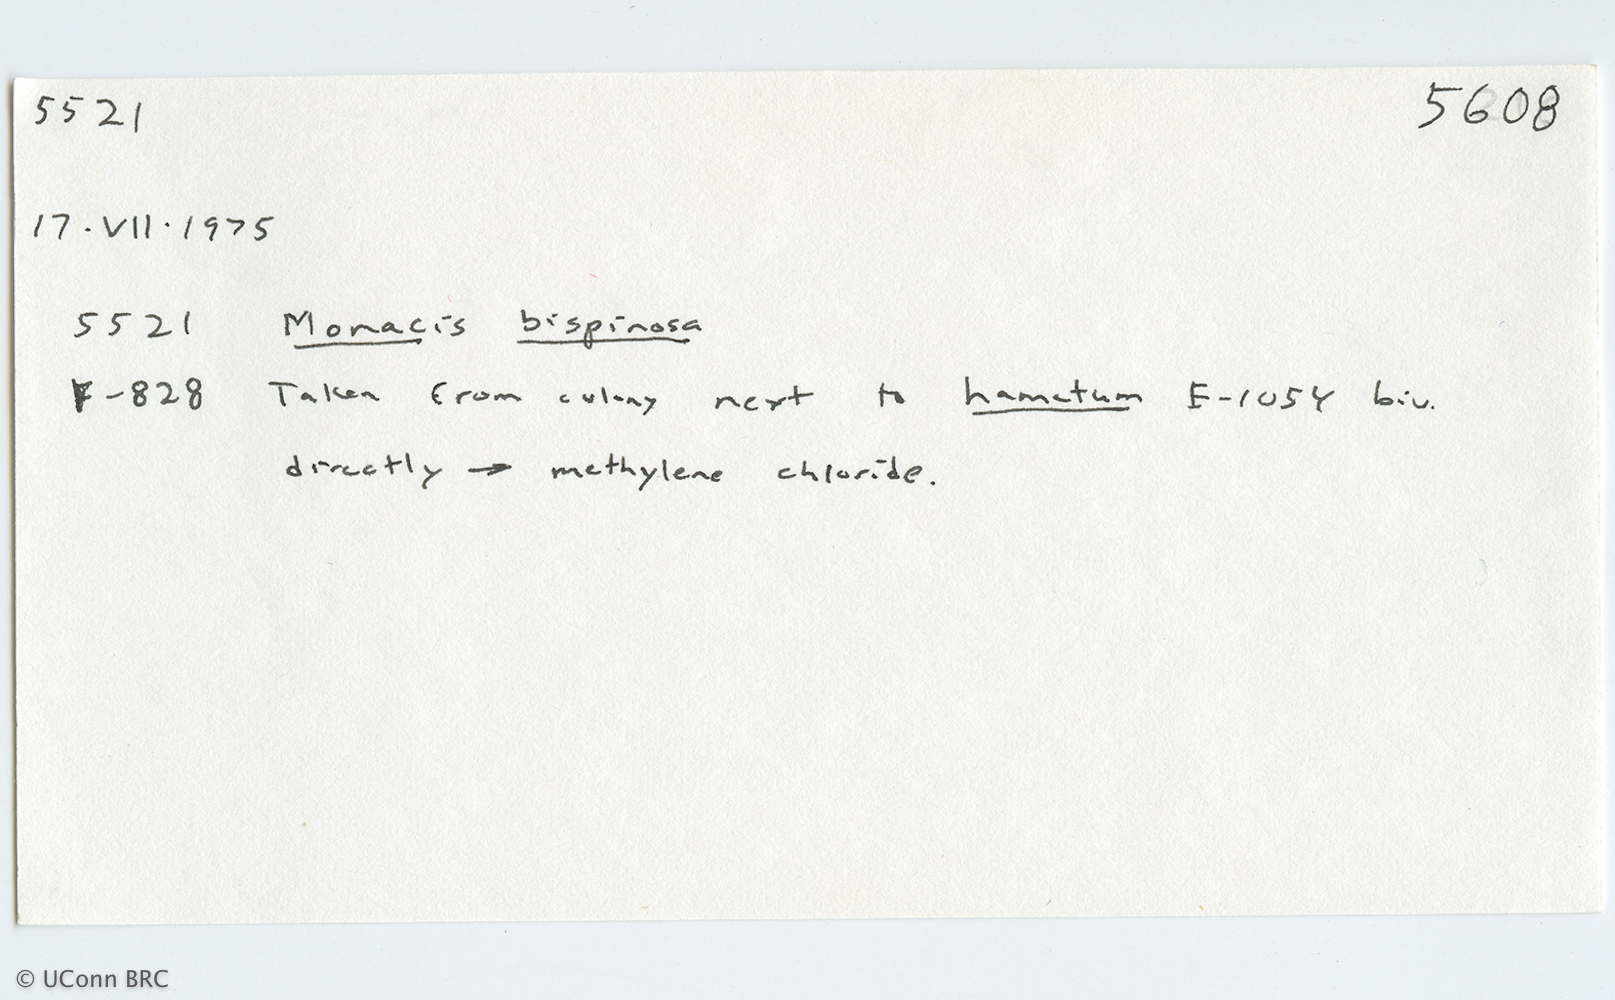 5521 5608
17.VII.1975
5521 Monacis bispinosa
F-828 Taken from colony next to hamatum E-1054 biv.
directly → methylene chloride.
© UConn BRC